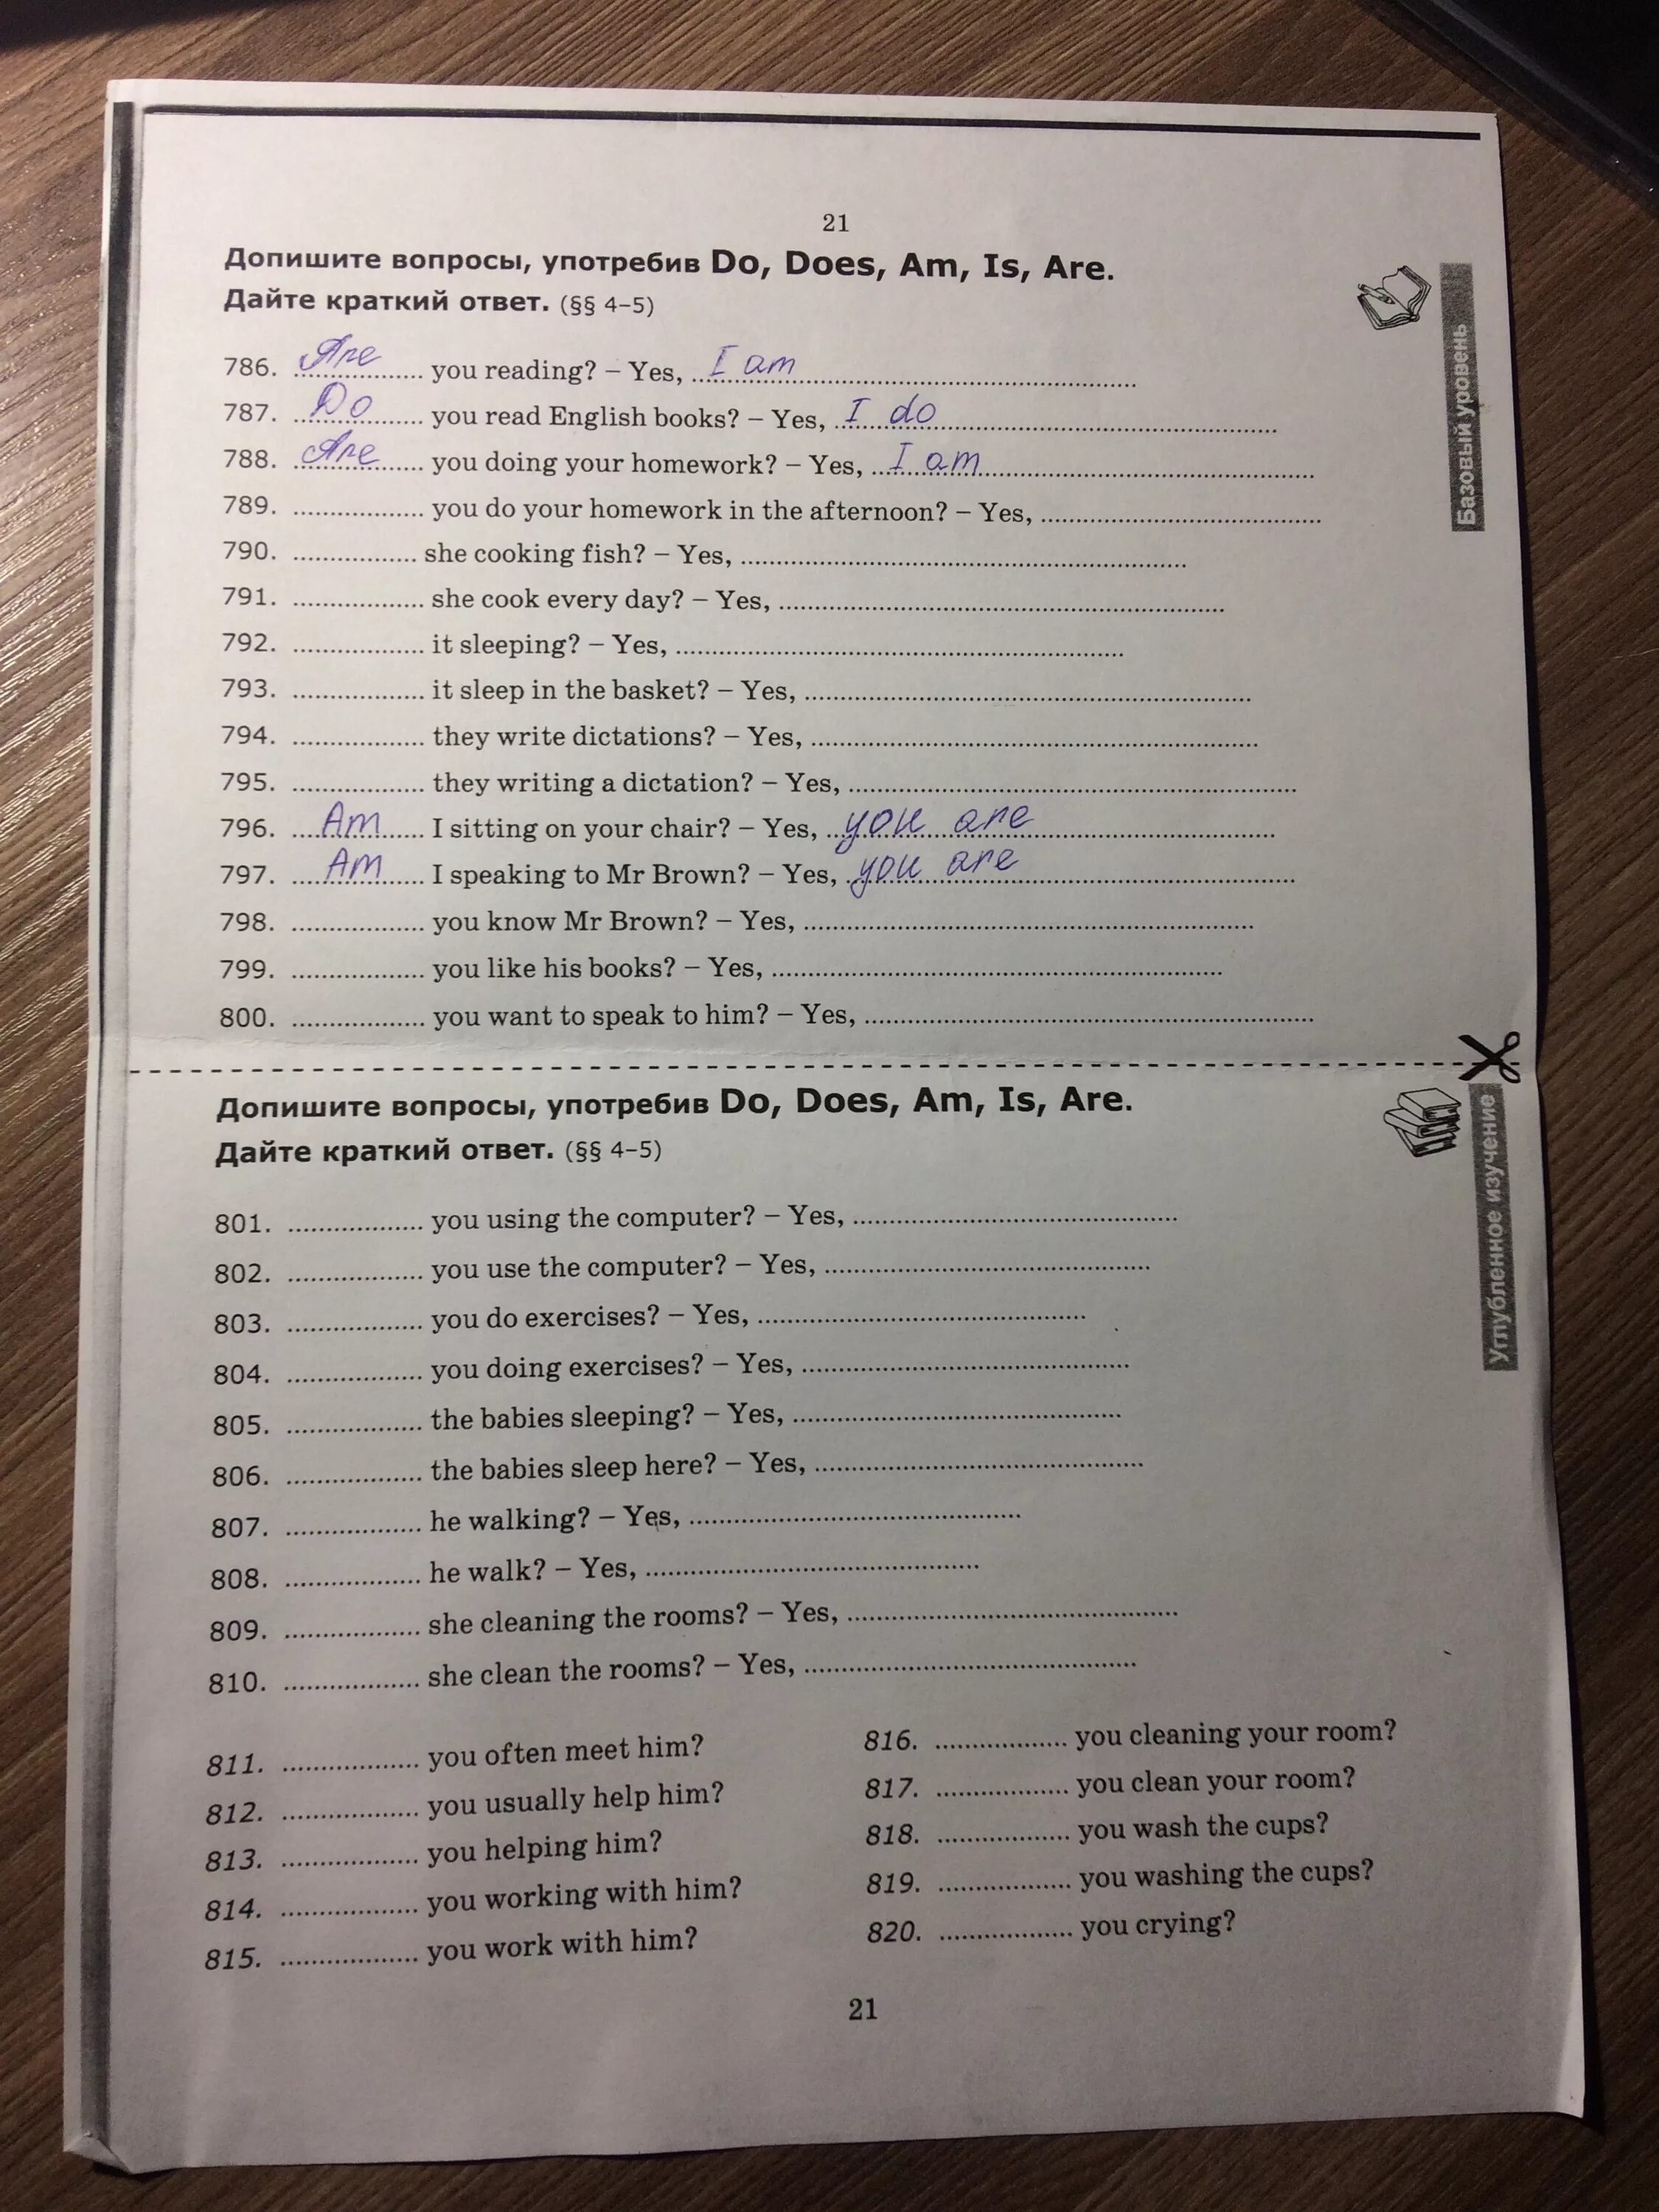 21
Допишите вопросы, употребив Do, Does, Am, Is, Are.
Дайте краткий ответ. (§§ 4–5)
Базовый уровень
786. Are you reading? – Yes, I am
787. Do you read English books? – Yes, I do
788. Are you doing your homework? – Yes, I am
789. .................. you do your homework in the afternoon? – Yes, ..................
790. .................. she cooking fish? – Yes, ..................
791. .................. she cook every day? – Yes, ..................
792. .................. it sleeping? – Yes, ..................
793. .................. it sleep in the basket? – Yes, ..................
794. .................. they write dictations? – Yes, ..................
795. .................. they writing a dictation? – Yes, ..................
796. Am I sitting on your chair? – Yes, you are
797. Am I speaking to Mr Brown? – Yes, you are
798. .................. you know Mr Brown? – Yes, ..................
799. .................. you like his books? – Yes, ..................
800. .................. you want to speak to him? – Yes, ..................
Допишите вопросы, употребив Do, Does, Am, Is, Are.
Дайте краткий ответ. (§§ 4–5)
Углубленное изучение
801. .................. you using the computer? – Yes, ..................
802. .................. you use the computer? – Yes, ..................
803. .................. you do exercises? – Yes, ..................
804. .................. you doing exercises? – Yes, ..................
805. .................. the babies sleeping? – Yes, ..................
806. .................. the babies sleep here? – Yes, ..................
807. .................. he walking? – Yes, ..................
808. .................. he walk? – Yes, ..................
809. .................. she cleaning the rooms? – Yes, ..................
810. .................. she clean the rooms? – Yes, ..................
811. .................. you often meet him?
812. .................. you usually help him?
813. .................. you helping him?
814. .................. you working with him?
815. .................. you work with him?
816. .................. you cleaning your room?
817. .................. you clean your room?
818. .................. you wash the cups?
819. .................. you washing the cups?
820. .................. you crying?
21